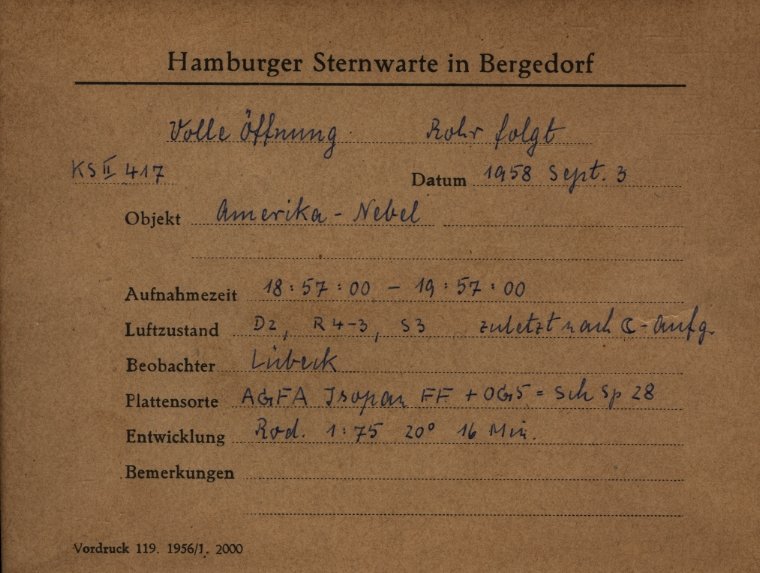 Hamburger Sternwarte in Bergedorf
Volle Öffnung Rohr folgt
KS II 417
Datum 1958 Sept. 3
Objekt Amerika - Nebel
Aufnahmezeit 18:57:00 - 19:57:00
Luftzustand D2, R 4-3, S3 zuletzt nach ☾-Aufg.
Beobachter Lübeck
Plattensorte AGFA Isopan FF + OG5 = Sch Sp 28
Entwicklung Rod. 1:75 20° 16 Min.
Bemerkungen
Vordruck 119. 1956/1. 2000